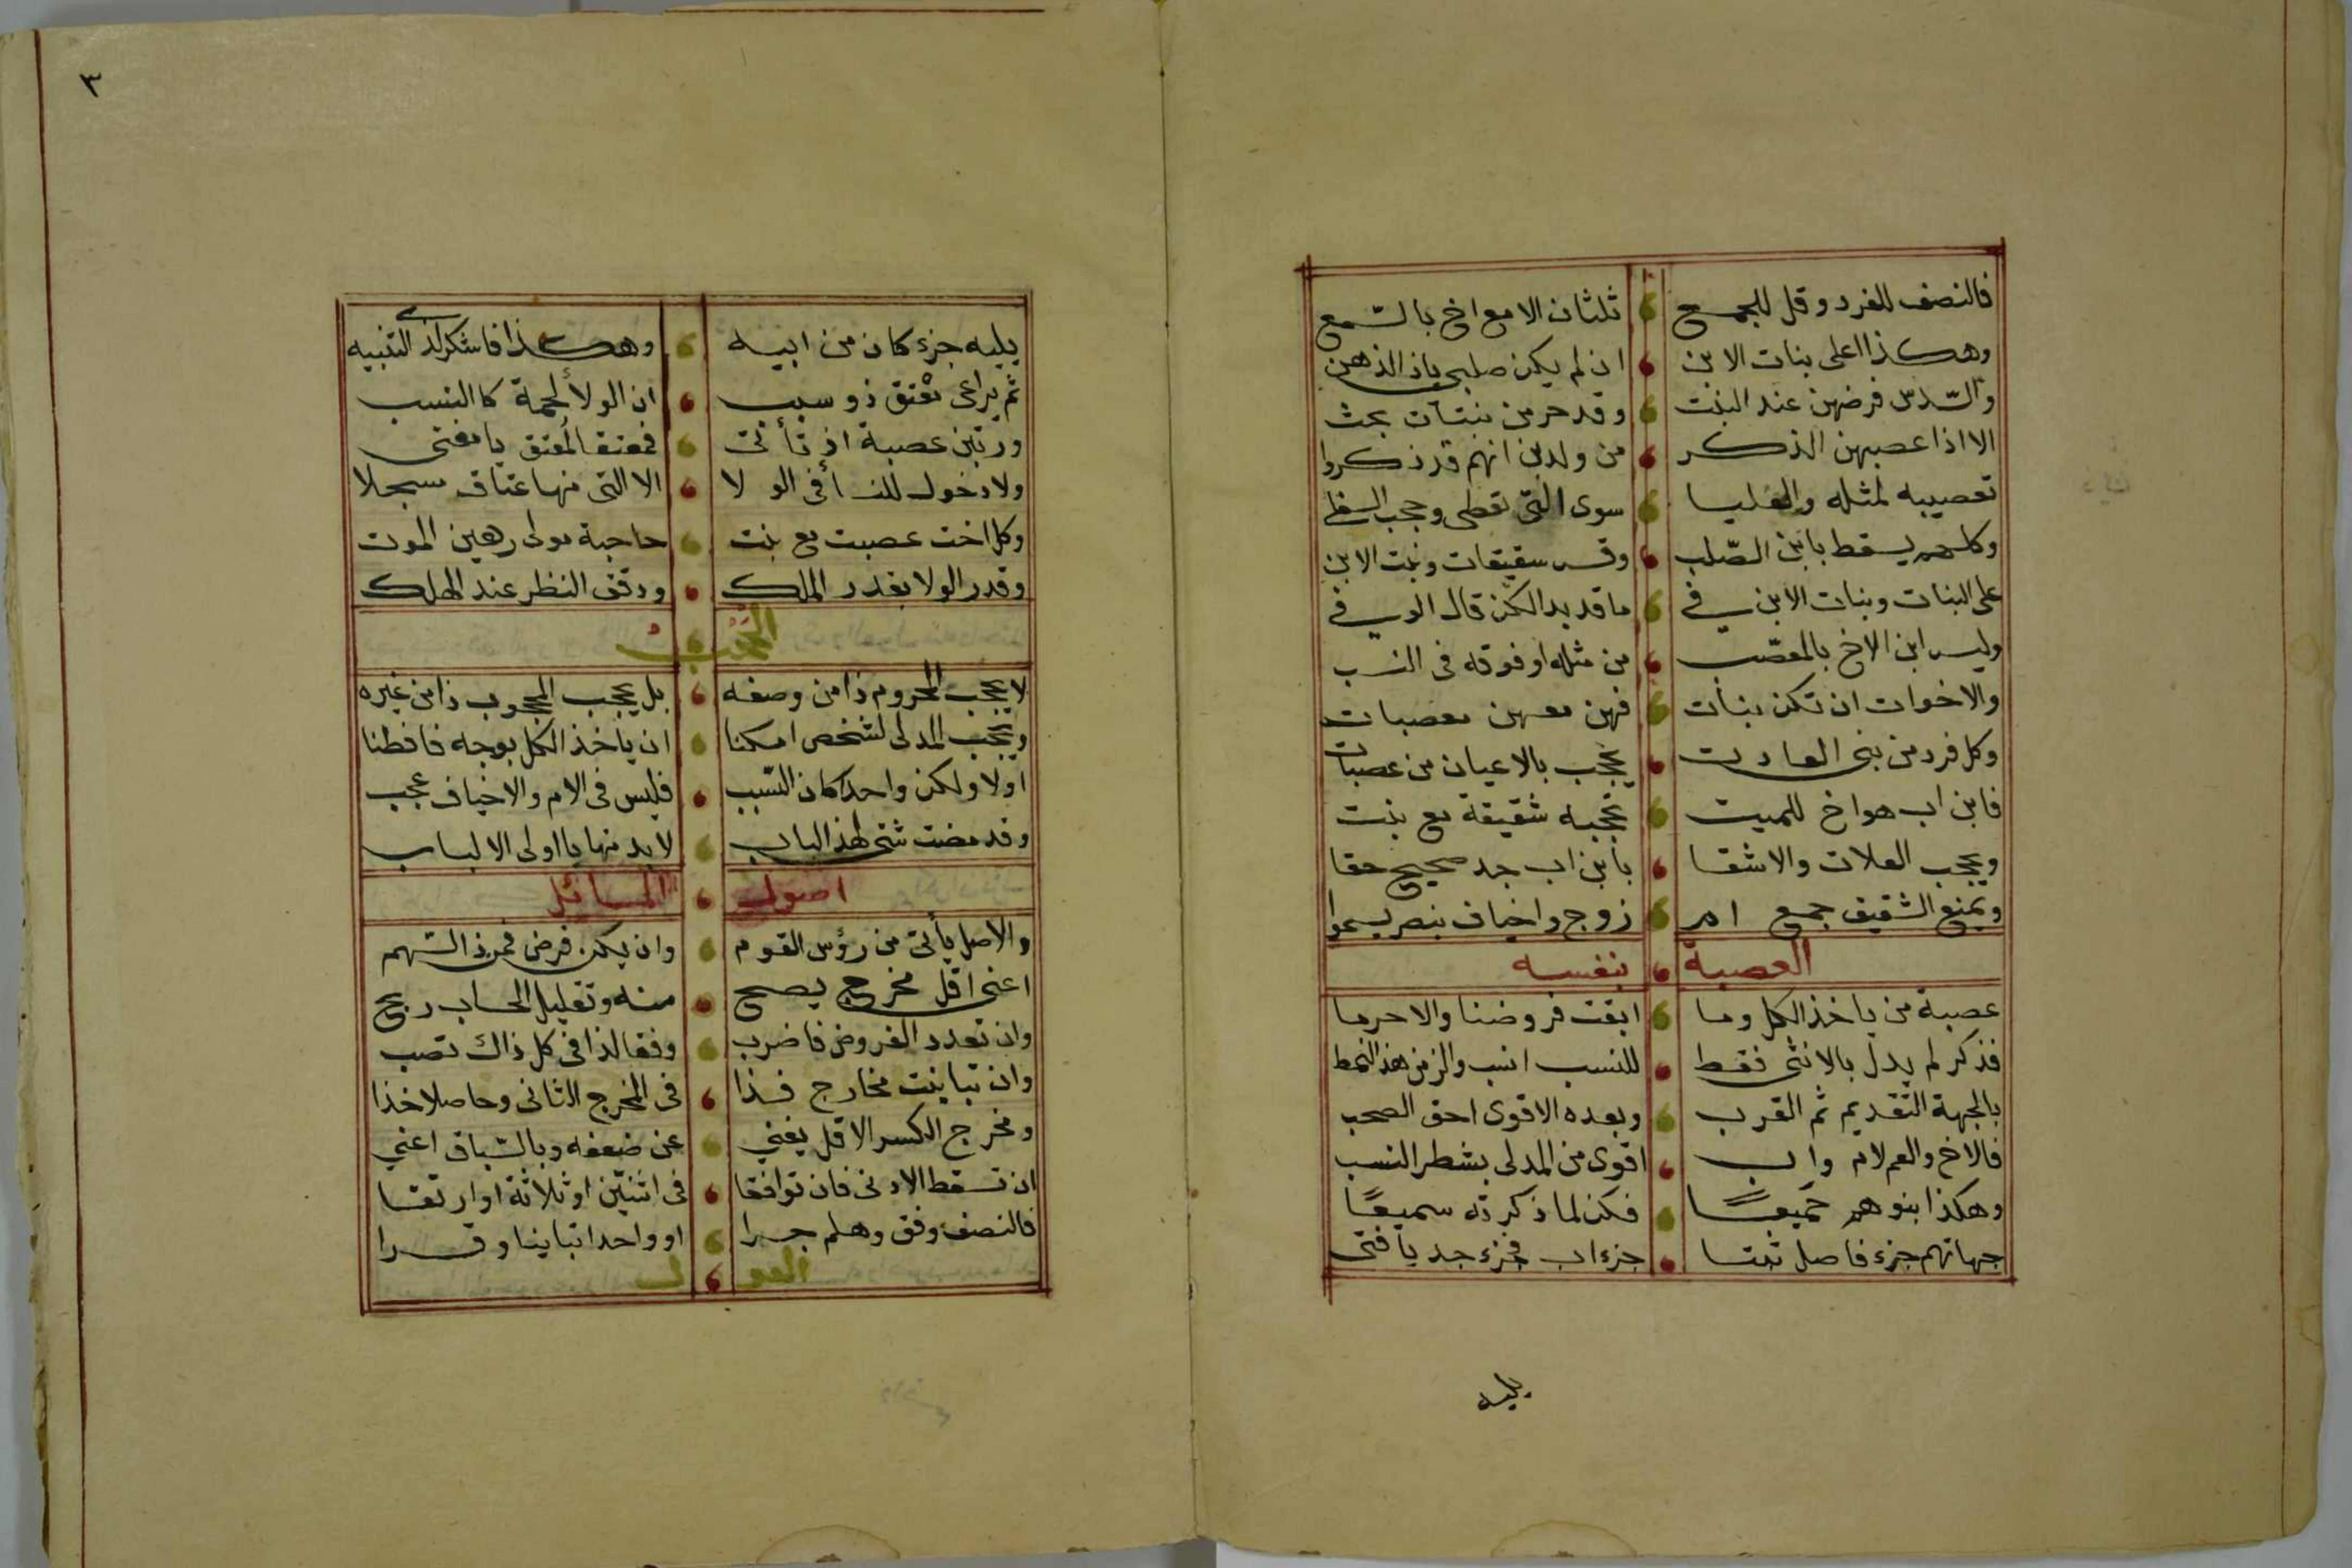 فالنصف للفرد وقل للجمع ثلثان الا مع اخ بالسّمع
وهكذا اعلى بنات الابن ان لم يكن صلبى ياذ الذهن
والسّدس فرضهن عند البنت وقد حر من بنتان بحث
الا اذا عصبهن الذكر من ولد ابن انهم قد ذكروا
تعصيبه لمثله والعليا سوى التى تعطى وحجب السفلى
وكلهم يسقط بابن الصّلب وقس شقيقات وبنت الابن
على البنات وبنات الابن فى ما قد بدا لكن قال الوفى
وليس ابن الاخ بالمعصّب من مثله او فوقه فى النسب
والاخوات ان تكن بنات فهن معهن معصبات
وكل فرد من بنى العلات يحجب بالاعيان من عصبات
فابن اب هو اخ للميت تحجبه شقيقة مع بنت
ويحجب العلات والاشقا بابن اب جد صحيح حقا
ويمنع الشقيق جمع ام زوج واخياف بنص يسموا
العصبة بنفسه
عصبة من ياخذ الكل وما ابقت فروضنا والا حرما
فذكر لم يدل بالانثى فقط للنسب انسب والزمن هذا النمط
بالجهة التقديم ثم القرب وبعده الاقوى احق الصحب
فالاخ والعم لام واب اقوى من المدلى بشطر النسب
وهكذا بنوهم جميعًا فكن لما ذكرته سميعًا
جهاتهم جزء فاصل ثبتا جزء اب فجزء جد يا فتى
يليه
٣
يليه جزء كان من ابيه وهكذا فاشكر لذى التنبيه
ثم يراعى معتق ذو سبب ان الولا لحمة كا النسب
ورتبن عصبة اذ تأتى فمعتق المعتق يا مفتى
ولا دخول للنسأ فى الولا الا التى منها عتاق سجلا
وكل اخت عصبت مع بنت حاجبة مولى رهين الموت
وقدر الولا بقدر الملك ودقق النظر عند الهلك
الحجب
لا يحجب المحروم ذا من وصفه بل يحجب المحجوب ذا من غيره
ويحجب المدلى لشخص امكنا ان ياخذ الكل بوجه فافطنا
اولا ولكن واحدا كان السّبب فليس فى الام والاخياف عجب
وقد مضت شتى لهذا الباب لا بد منها يا اولى الالباب
اصول المسائل
والاصل يأتى من رؤس القوم وان يكن فرض فمن ذ السّهم
اعنى اقل مخرج يصح منه وتقليل الحساب ربح
وان تعدد الفروض فاضرب وفقا لذا فى كل ذاك تصب
وان تباينت مخارج فذا فى المخرج الثانى وحاصلا خذا
ومخرج الكسر الاقل يغني عن ضعفه وبالسّباق اعني
ان تسقط الادنى فان توافقا فى اثنتين او ثلاثة او ارتقا
فالنصف وفق وهلم جرا او واحدا تباينا وقرا
العول